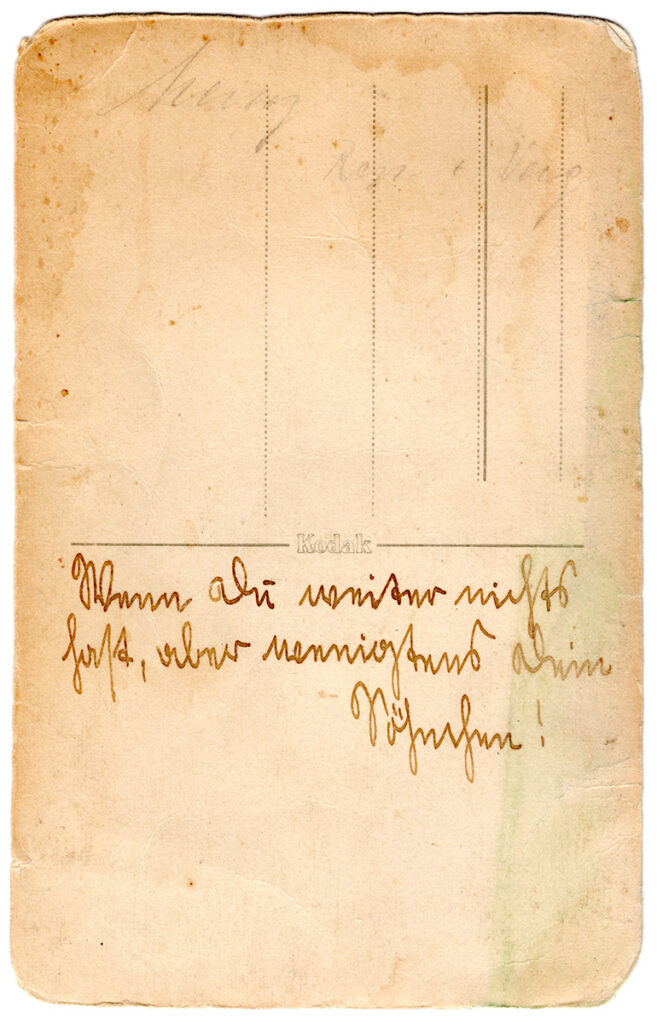 Kodak
Wenn Du weiter nichts
hast, aber wenigtens Dein
Söhnchen!